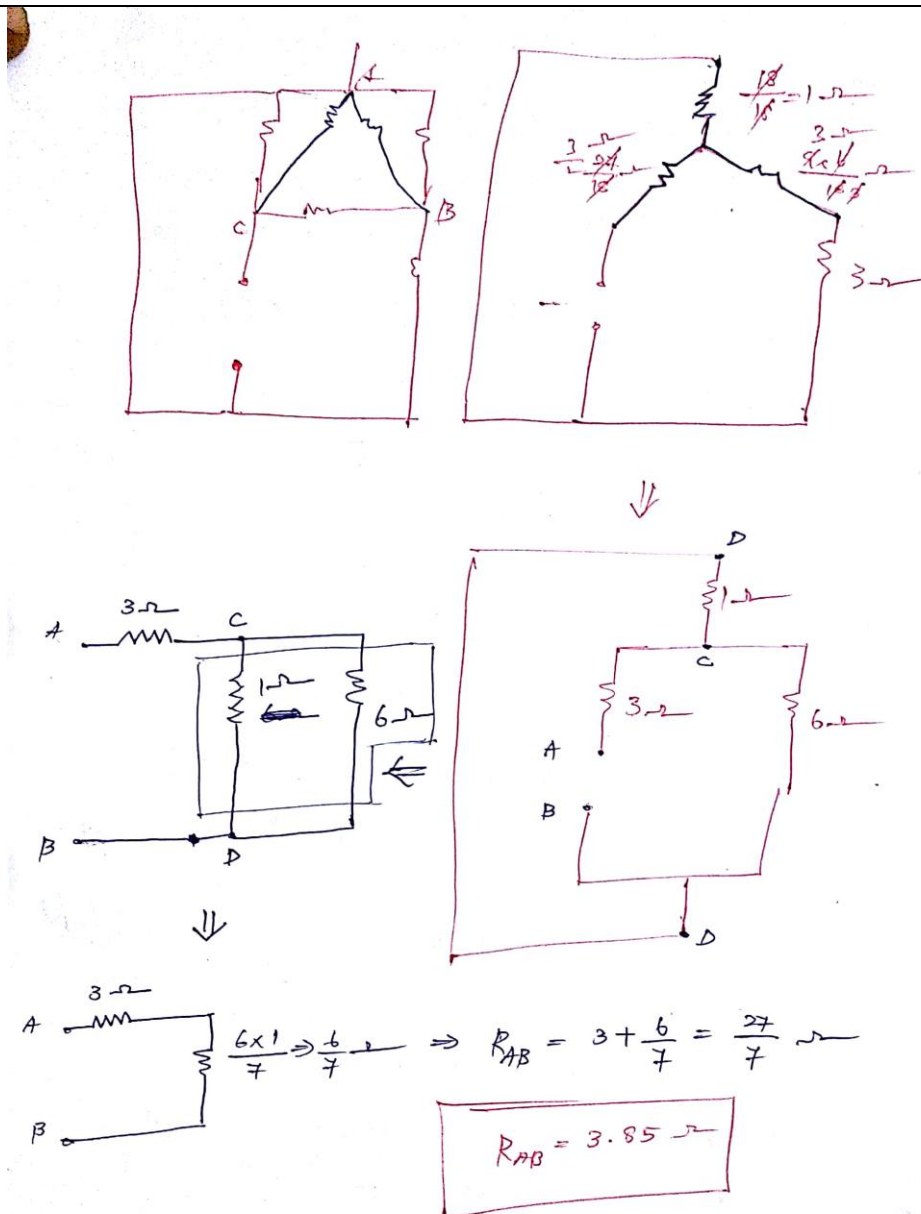 A
C
B
18/18 = 1 Ω
3 Ω
27/18 Ω
3 Ω
Ω
3 Ω
⇓
D
1 Ω
C
3 Ω
6 Ω
A
B
D
3 Ω
A
C
1 Ω
6 Ω
⇐
B
D
⇓
3 Ω
A
B
6×1/7 ⇒ 6/7 Ω ⇒ R_AB = 3 + 6/7 = 27/7 Ω
R_AB = 3.85 Ω